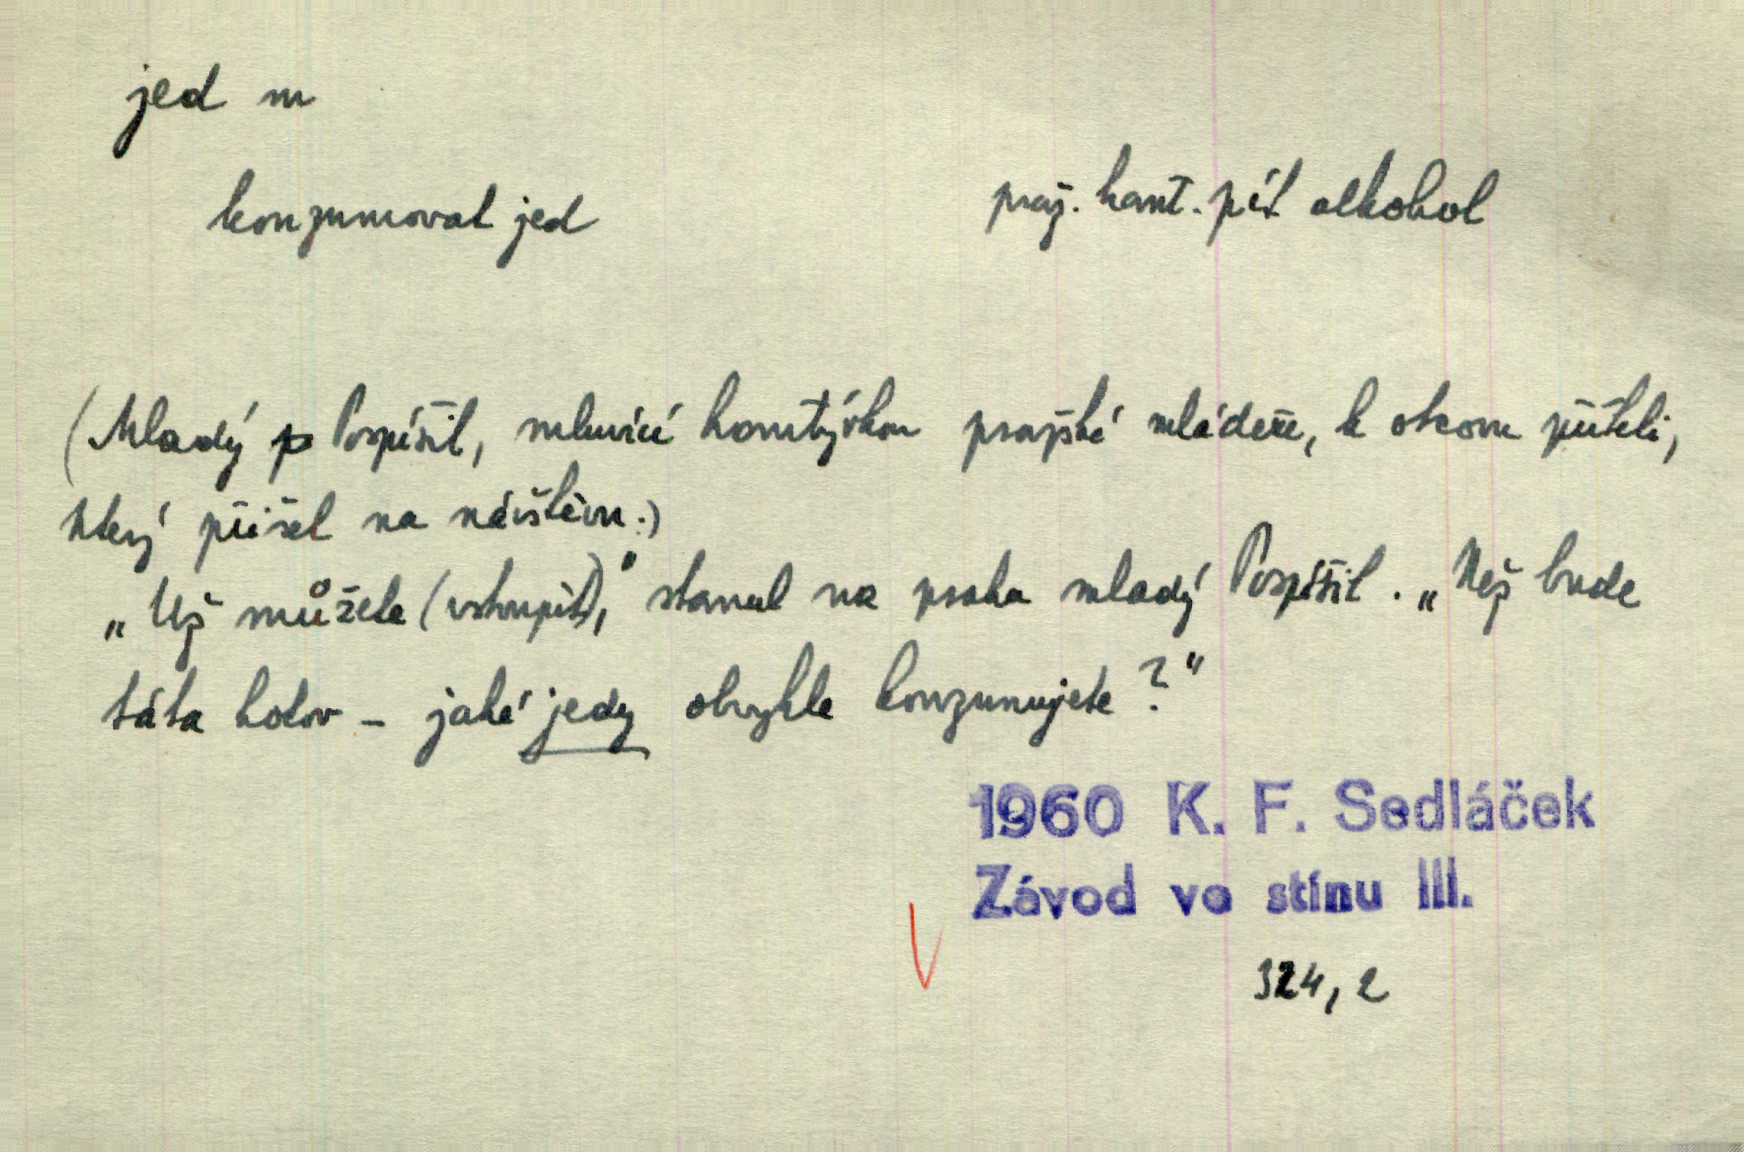 jed m
konzumovat jed
praž. hant. pít alkohol
(Mladý p Pospíšil, mluvící hantýrkou pražské mládeže, k otcovu příteli,
který přišel na návštěvu.)
„Už můžete (vstoupit)," stanul na prahu mladý Pospíšil. „Než bude
táta hotov – jaké jedy obvykle konzumujete?"
1960 K. F. Sedláček
Závod ve stínu III.
324, 2